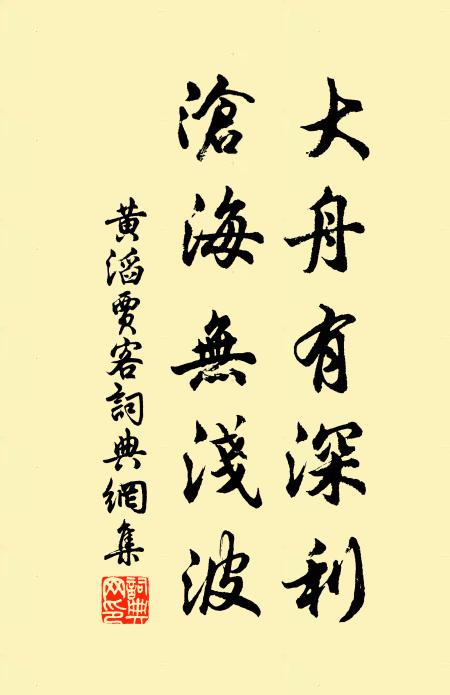 大舟有深利
滄海無淺波
黄滔賈客詞典網集
詞典網印